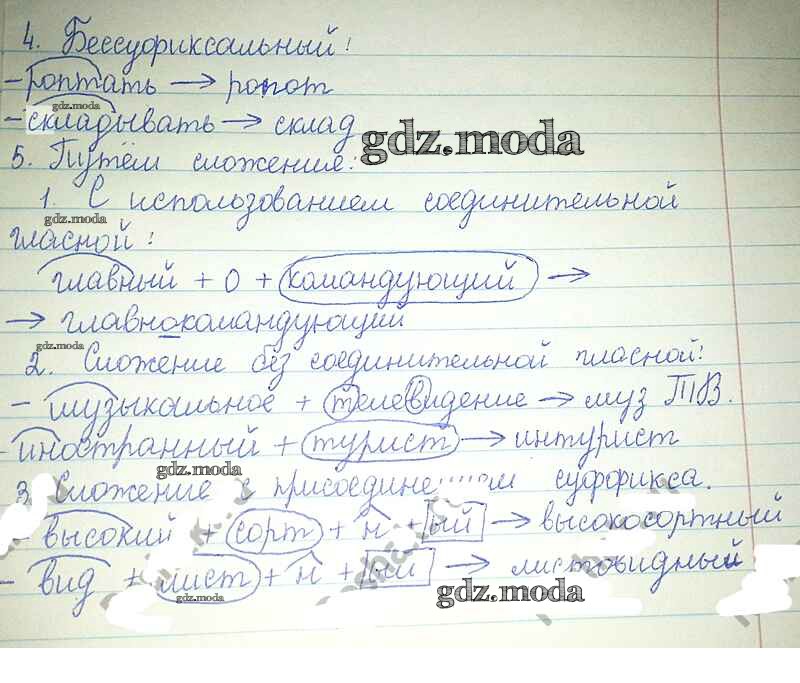 4. Бессуфиксальный!
- роптать → ропот
gdz.moda
- складывать → склад
gdz.moda
5. Путём сложение:
1. С использованием соединительной
gdz.moda
гласной!
главный + о + командующий →
→ главнокомандующий
gdz.moda
2. Сложение без соединительной гласной!
- музыкальное + телевидение → муз ТВ.
- иностранный + турист → интурист
gdz.moda
3. Сложение с суффикса.
- высокий + сорт + н + ый → высокосортный
- вид + лист + н + ый → листовидный
gdz.moda
gdz.moda